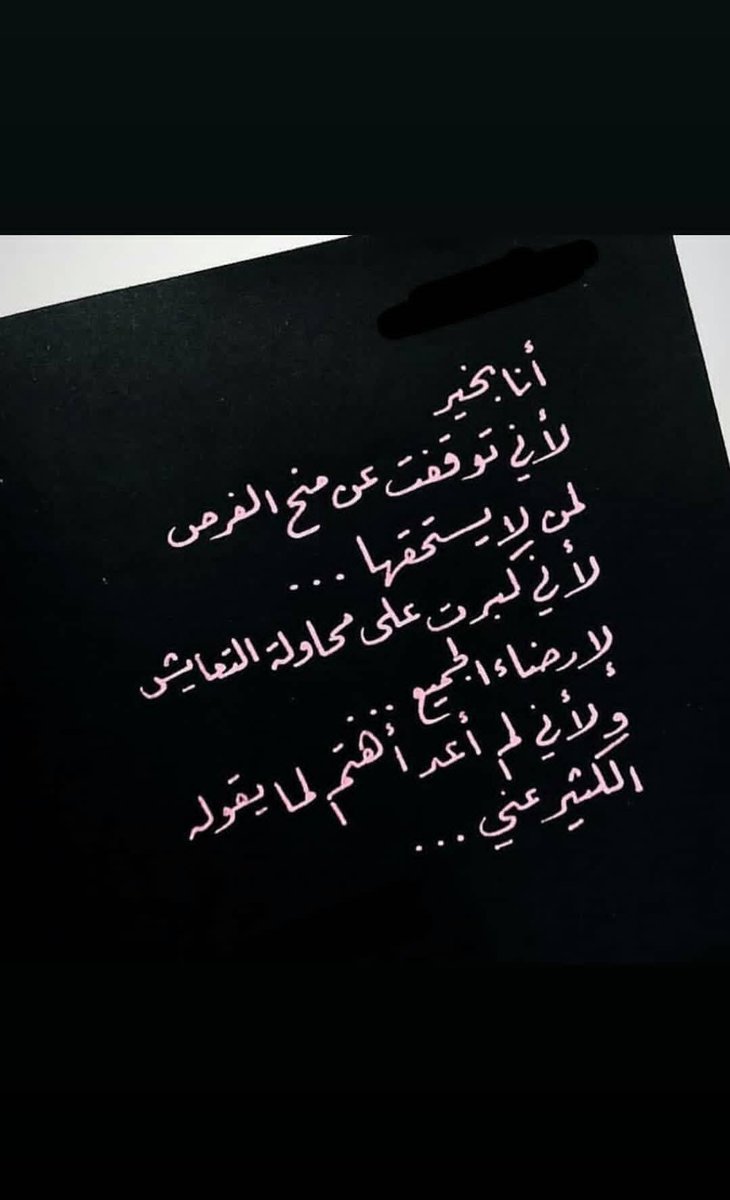 أنا بخير
لأني توقفت عن منح الفرص
لمن لا يستحقها ...
لأني كبرت على محاولة التعايش
لإرضاء الجميع ...
ولأني لم أعد أهتم لما يقوله
الكثير عني ...